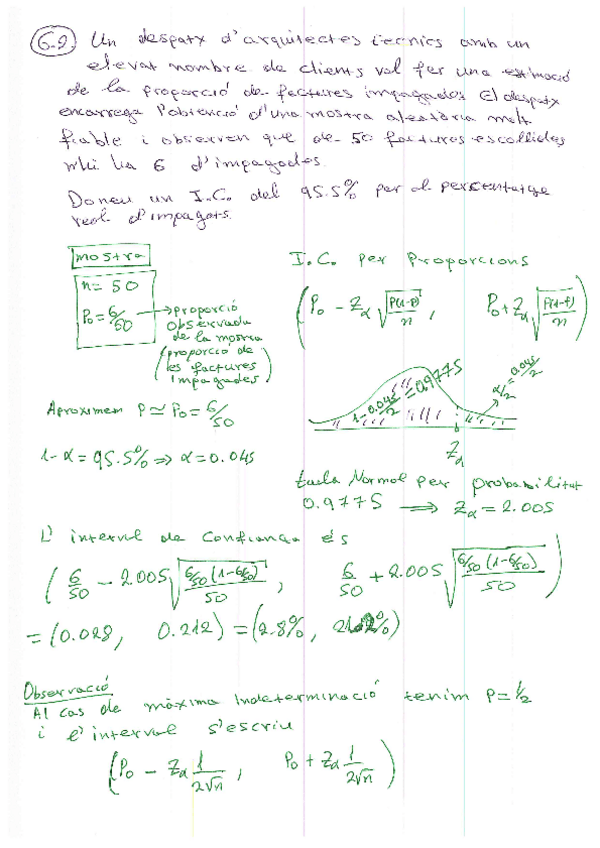 6.2 Un despatx d'arquitectes tècnics amb un
elevat nombre de clients vol fer una estimació
de la proporció de factures impagades. El despatx
encarrega l'obtenció d'una mostra aleatòria molt
fiable i observen que de 50 factures escollides
n'hi ha 6 d'impagades.
Doneu un I.C. del 95.5% per al percentatge
real d'impagats.
mostra
n = 50
P₀ = 6/50 → proporció
observada
de la mostra
(proporció de
les factures
impagades)
I.C. per Proporcions
(P₀ - Zα √(P(1-P)/n) , P₀ + Zα √(P(1-P)/n))
Aproximem P ≃ P₀ = 6/50
1-α = 95.5% ⇒ α = 0.045
1 - 0.045/2 = 0.9775
α/2 = 0.045/2
Zα
taula Normal per probabilitat
0.9775 ⟹ Zα = 2.005
L'interval de confiança és
(6/50 - 2.005 √(6/50 (1-6/50)/50) , 6/50 + 2.005 √(6/50 (1-6/50)/50))
= (0.028, 0.212) = (2.8%, 21.2%)
Observació
Al cas de màxima indeterminació tenim P = 1/2
i l'interval s'escriu
(P₀ - Zα 1/(2√n) , P₀ + Zα 1/(2√n))